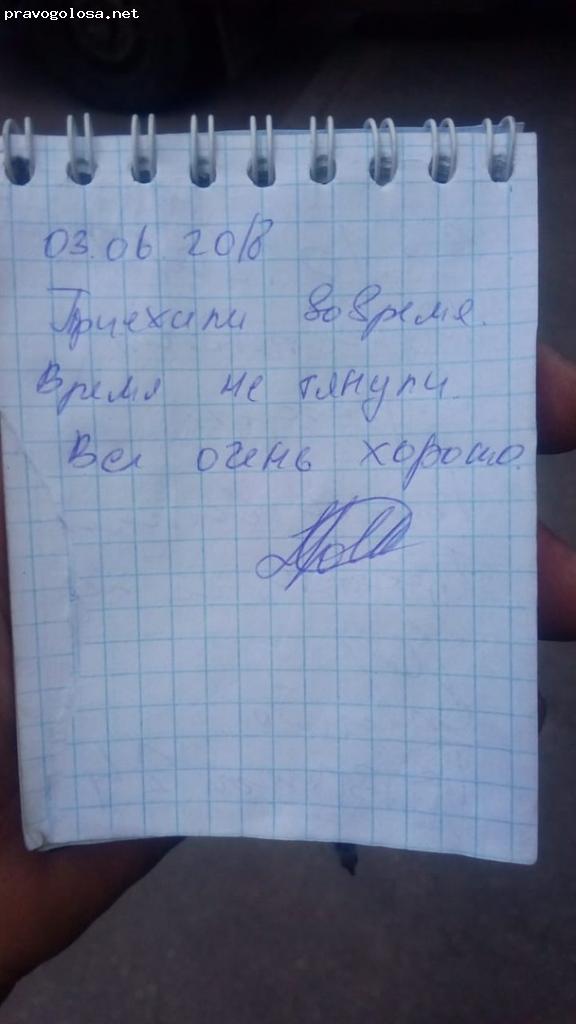 pravogolosa.net
03.06.2018
Приехали вовремя.
Время не тянули.
Все очень хорошо.